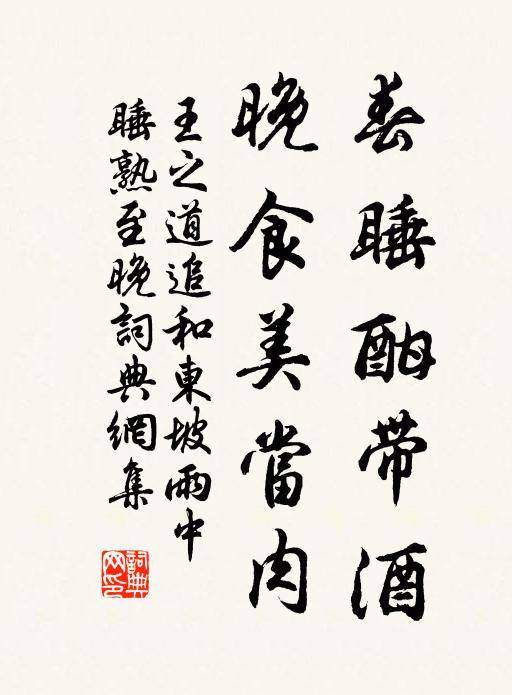 春睡酣帶酒
晚食美當肉
王之道追和東坡雨中
睡熟至晚詞典網集
詞典
网印